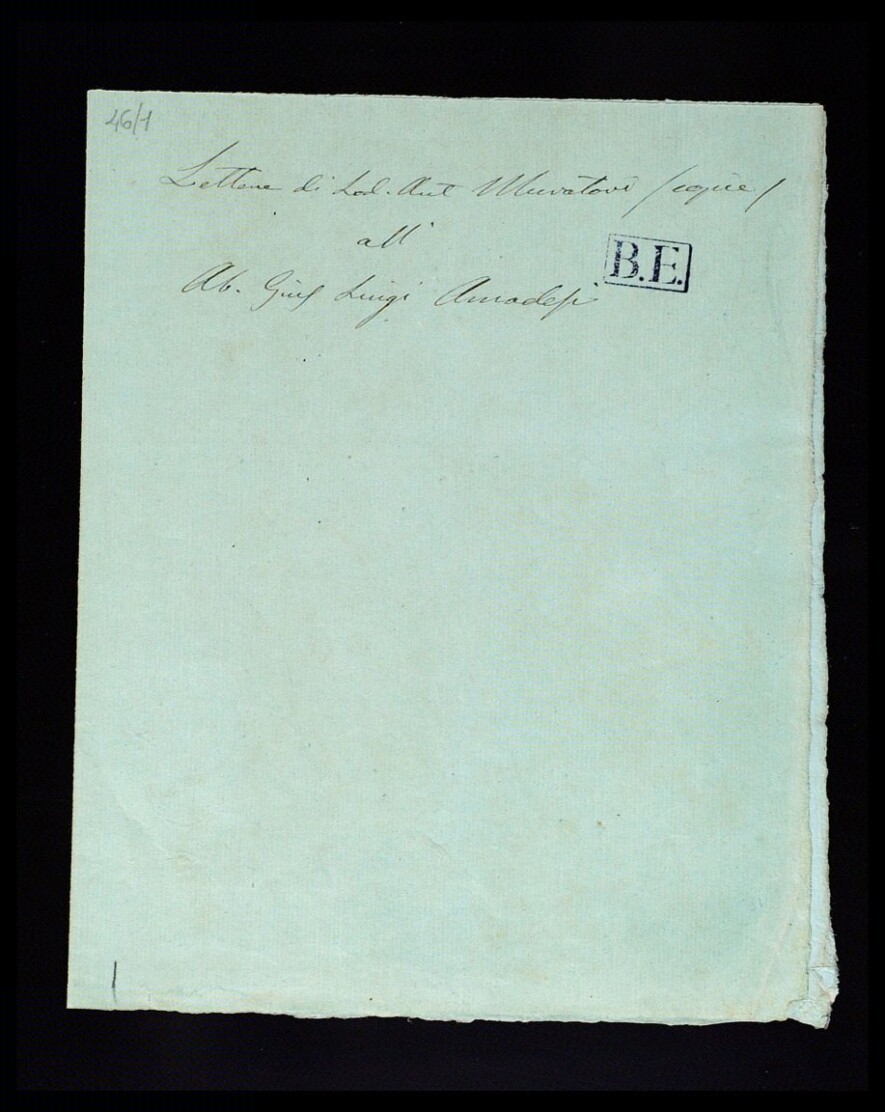 46/1
Lettere di Lod. Ant Muratori (copie)
all'
Ab. Gius Luigi Amadesi
B.E.